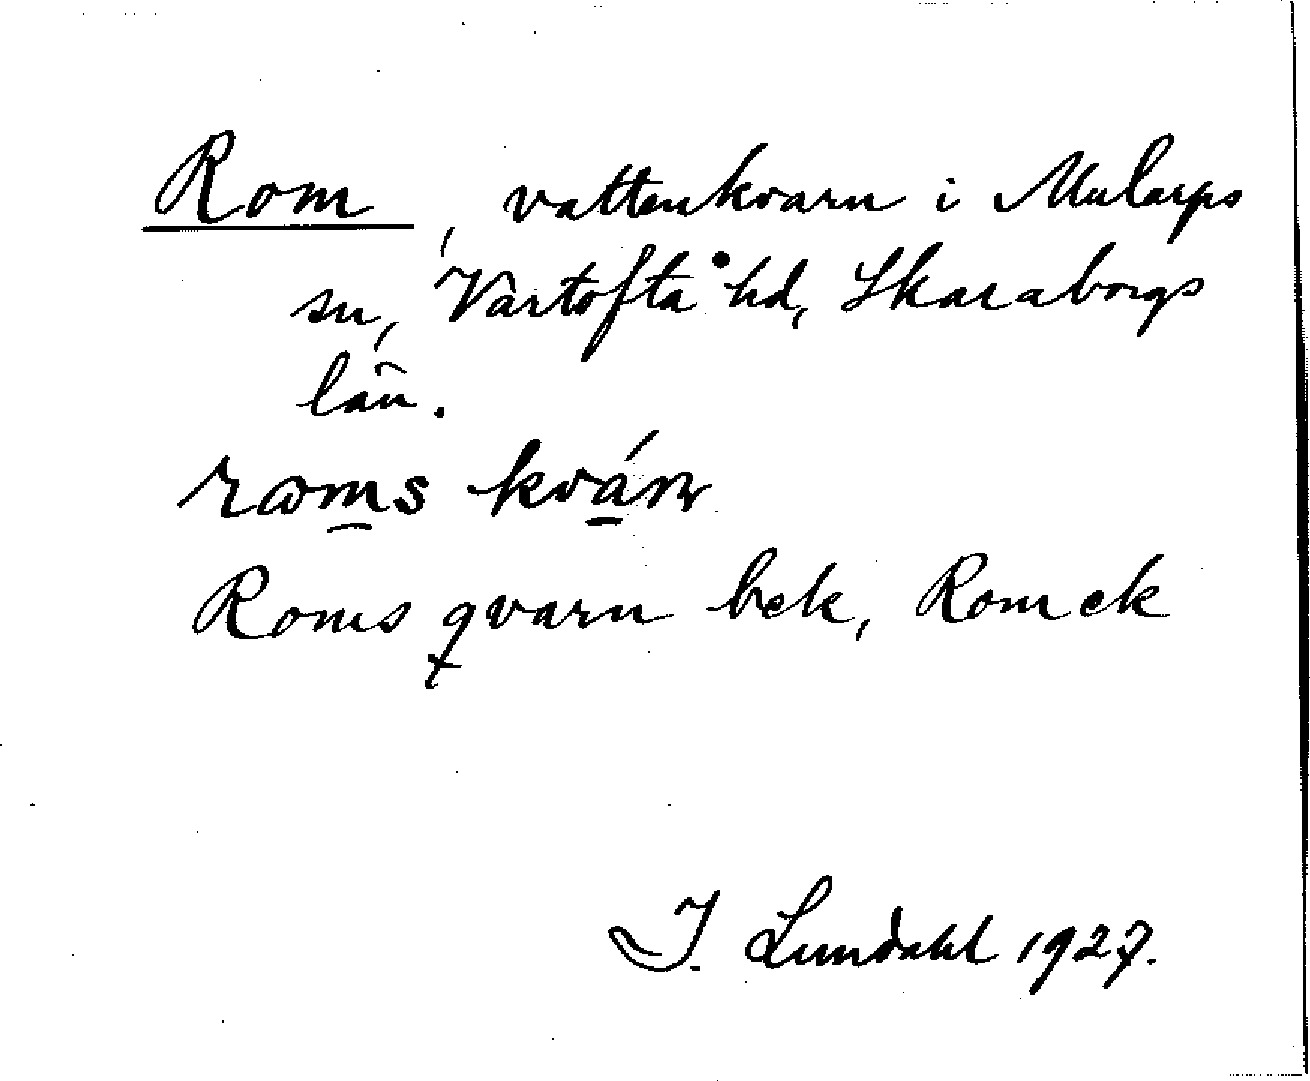 Rom, vattenkvarn i Mularps
sn, Vartofta hd, Skaraborgs
län.
roms kván
Roms qvarn bek, Rom ek
I. Lundahl 1927.